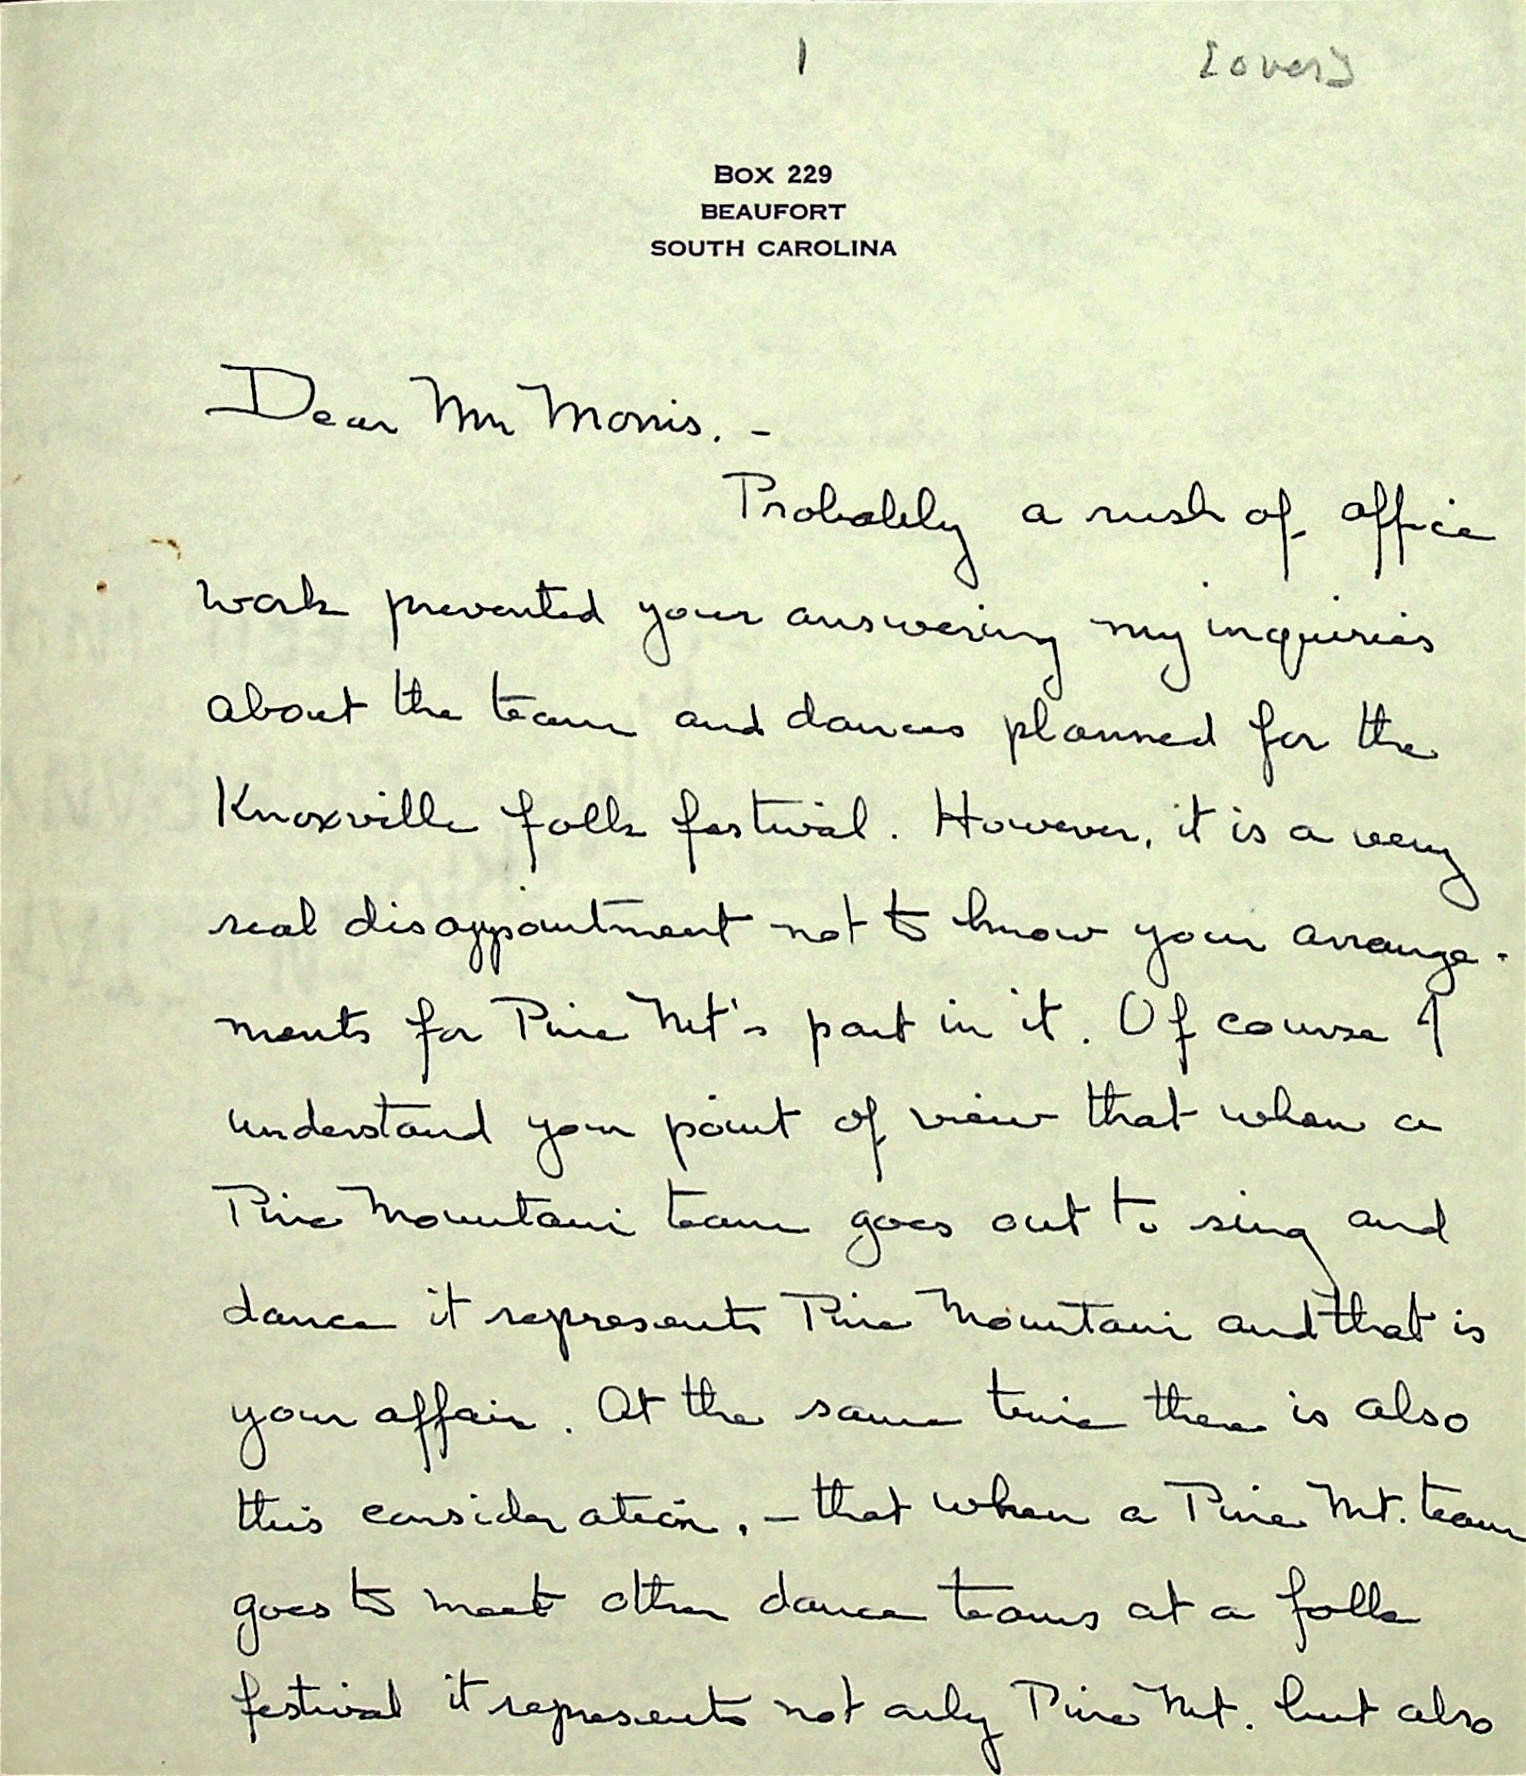 1 [over]
BOX 229
BEAUFORT
SOUTH CAROLINA
Dear Mr Morris. -
Probably a rush of office
work prevented your answering my inquiries
about the team and dances planned for the
Knoxville folk festival. However, it is a very
real disappointment not to know your arrange-
ments for Pine Mt's part in it. Of course I
understand your point of view that when a
Pine Mountain team goes out to sing and
dance it represents Pine Mountain and that is
your affair. At the same time there is also
this consideration, - that when a Pine Mt. team
goes to meet other dance teams at a folk
festival it represents not only Pine Mt. but also